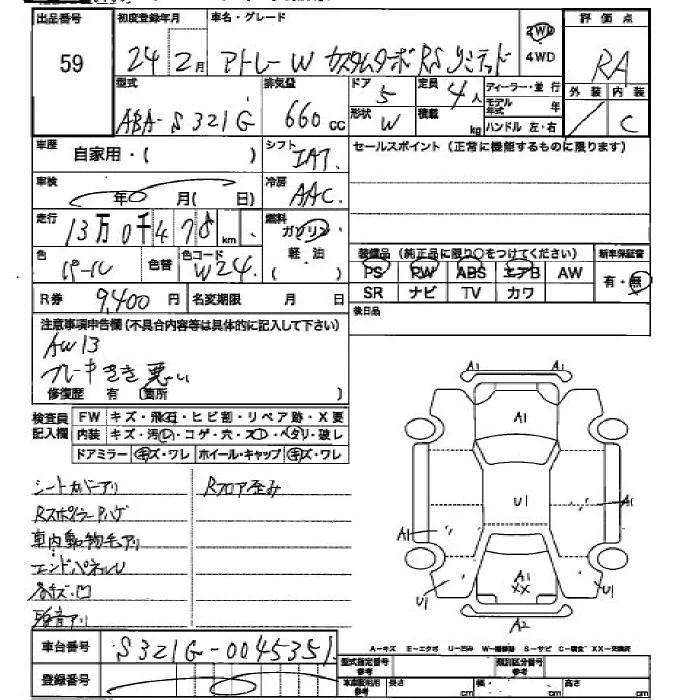 出品番号 初度登録年月 車名・グレード 評価点
59 24 2月 アトレーW カスタムターボRS リミテッド 2WD 4WD RA
型式 排気量 ドア 定員 ディーラー・並行 外装 内装
ABA-S321G 660cc 5 4人 モデル年式 年
形状 W 積載 kg ハンドル 左・右 / C
車歴 自家用・( ) シフト IAT セールスポイント (正常に機能するものに限ります)
車検 年 月( 日) 冷房 AAC
走行 13万0千478km 燃料 ガソリン
色 パール 色替 色コード W24 軽・油 ( )
装備品 (純正品に限り○をつけてください) 新車保証書
PS PW ABS エアB AW 有・無
SR ナビ TV カワ
R券 9,400円 名変期限 月 日 後日品
注意事項申告欄(不具合内容等は具体的に記入して下さい)
AW13
ブレーキきき悪い
修復歴 有 (箇所 )
検査員記入欄 FW キズ・飛石・ヒビ割・リペア跡・X要
内装 キズ・汚・コゲ・穴・スレ・ヘタリ・破レ
ドアミラー キズ・ワレ ホイール・キャップ キズ・ワレ
シートカバーアリ Rフロア歪み
Rスポイラーハゲ
車内動物毛アリ
エンドパネルU
各キズ・凹
異音アリ
A1 A1
A1
U1
A1
A1
A1
XX
U1 U1
A2
A-キズ E-エクボ U-凹ミ W-補修跡 S-サビ C-腐食 XX-交換済
車台番号 S321G-0045351
登録番号
型式指定番号 参考 類別区分番号 参考
長さ cm 幅 cm 高さ cm